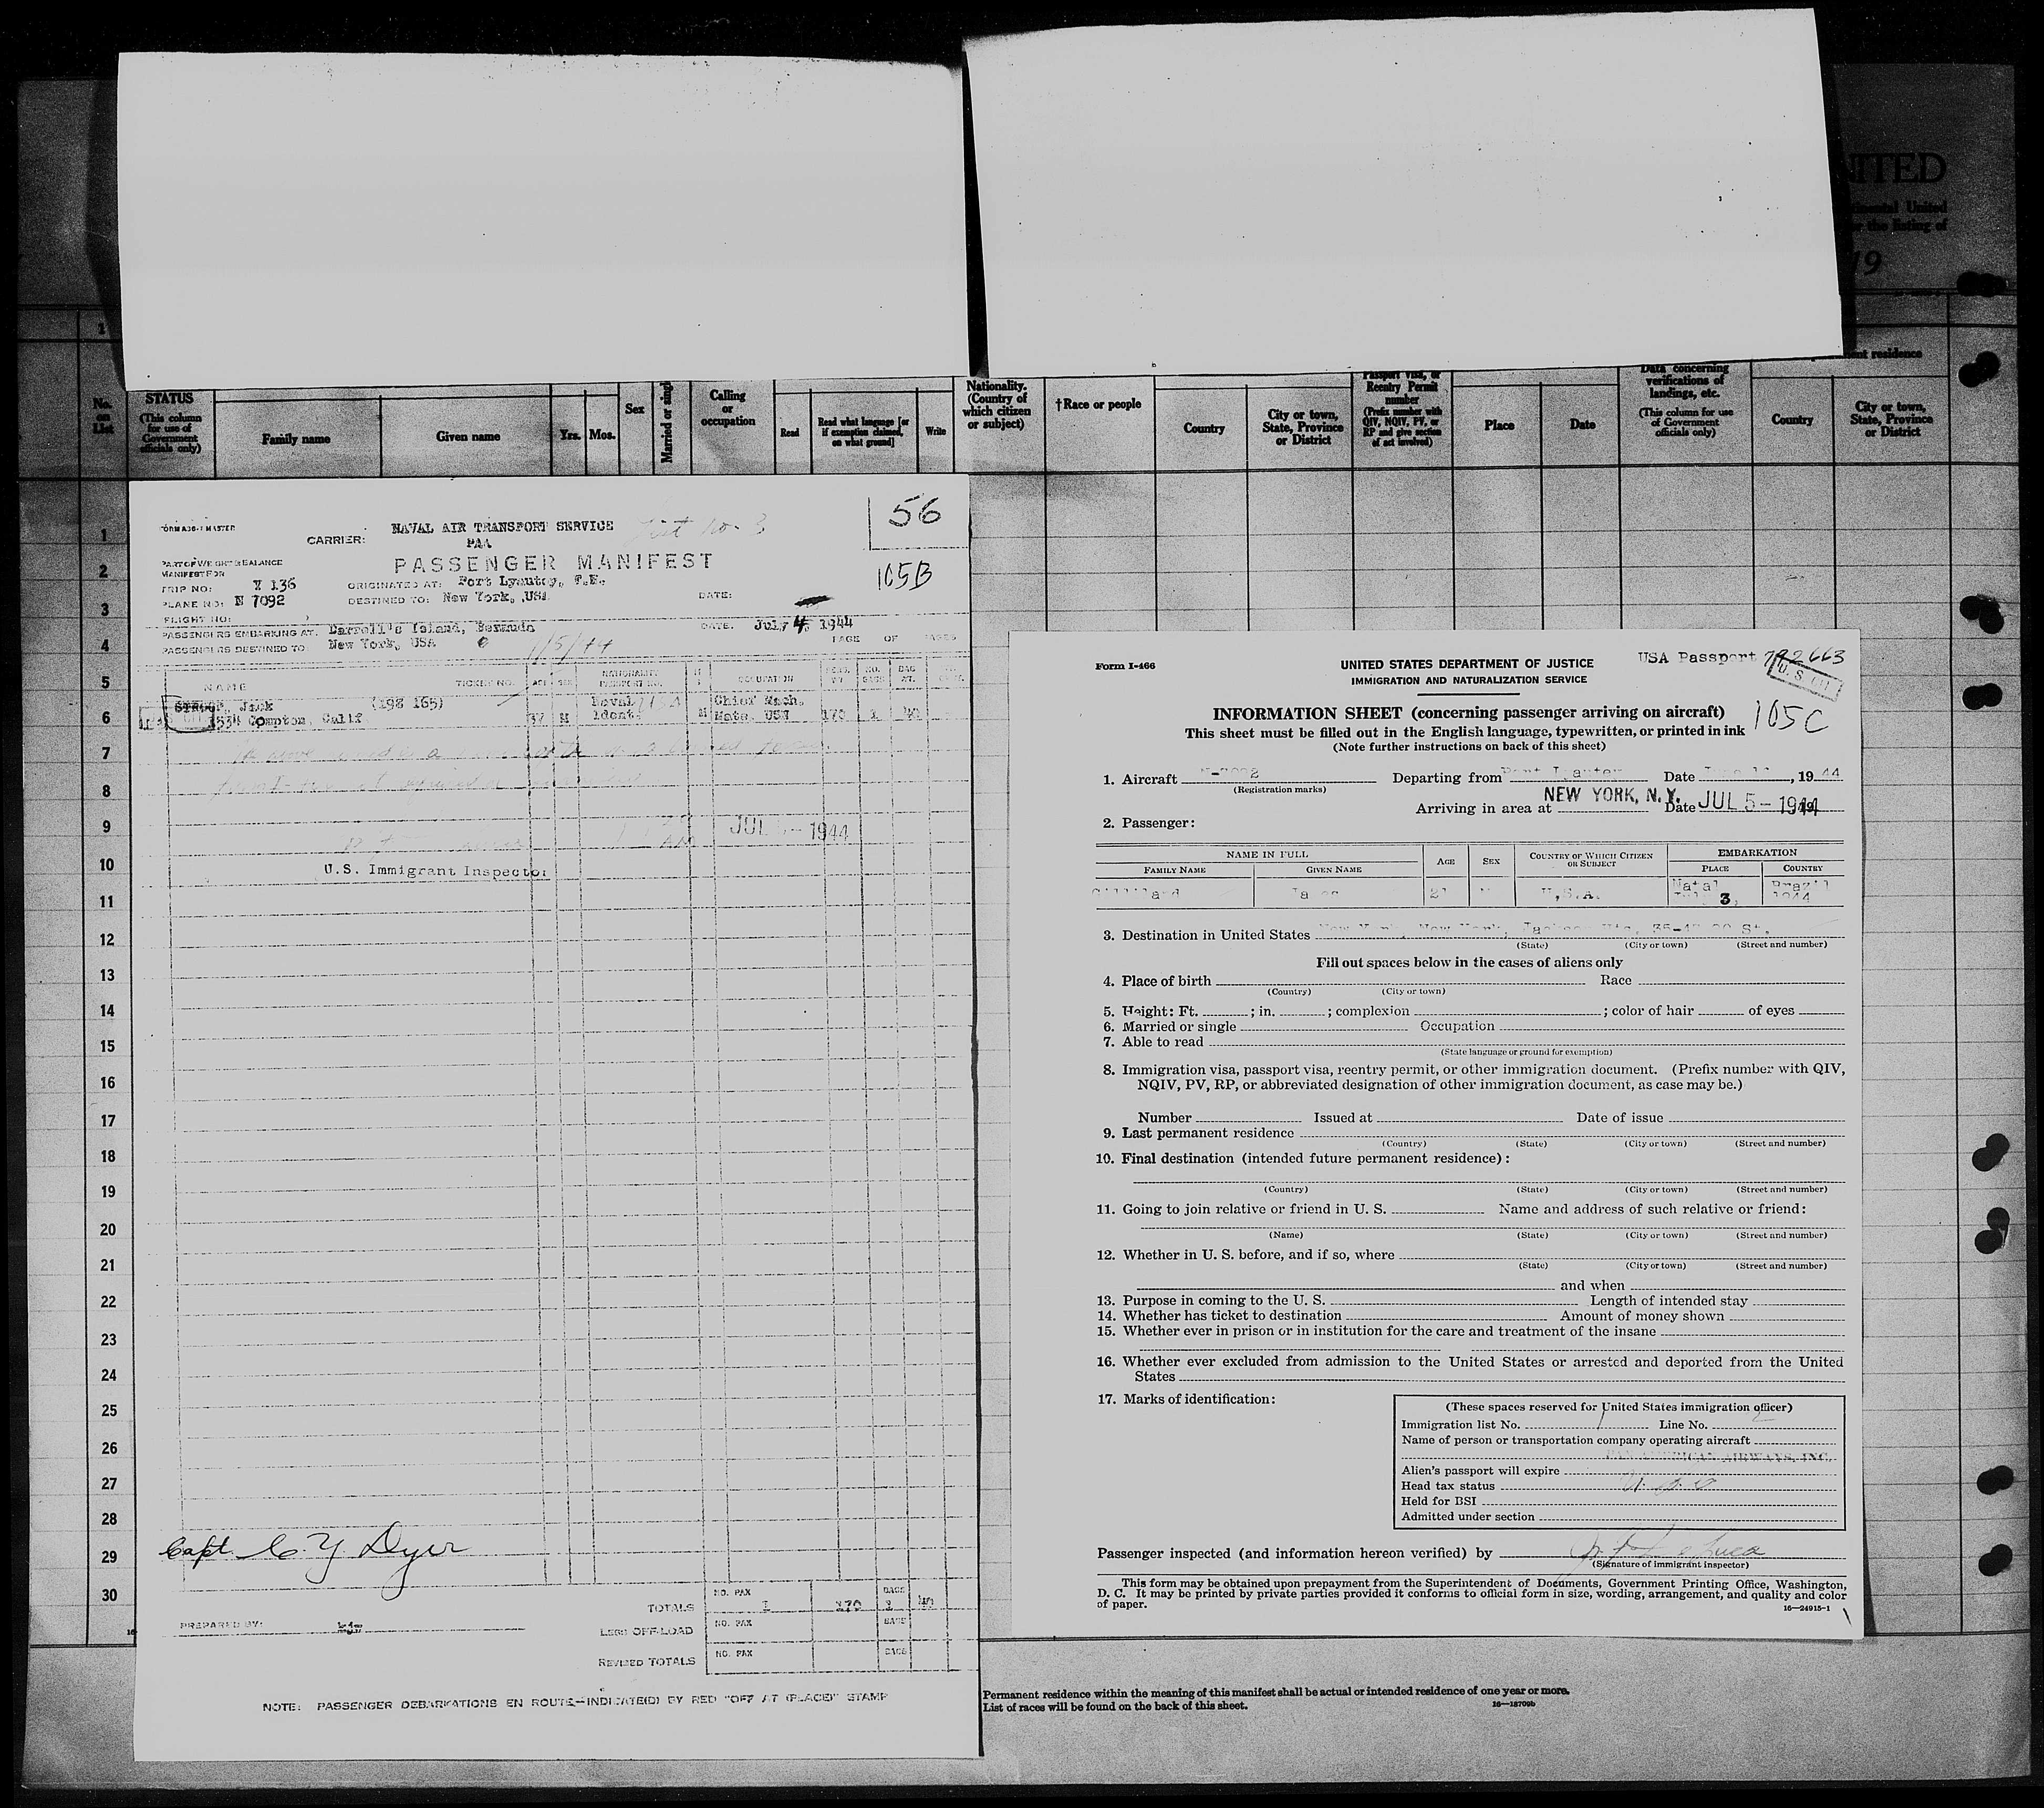 NITED
19
1
ent residence
No. on List
STATUS
(This column for use of Government officials only)
Family name
Given name
Yrs.
Mos.
Sex
Married or singl
Calling or occupation
Read
Read what language [or if exemption claimed, on what ground]
Write
Nationality. (Country of which citizen or subject)
†Race or people
Country
City or town, State, Province or District
Passport visa, or Reentry Permit number
(Prefix number with QIV, NQIV, PV, or RP and give section of act involved)
Place
Date
Data concerning verifications of landings, etc.
(This column for use of Government officials only)
Country
City or town, State, Province or District
1
2
3
4
5
6
7
8
9
10
11
12
13
14
15
16
17
18
19
20
21
22
23
24
25
26
27
28
29
30
56
CARRIER: NAVAL AIR TRANSPORT SERVICE
PAA
PASSENGER MANIFEST
105B
PART OF WEIGHT & BALANCE
MANIFEST FOR
TRIP NO: X 136
ORIGINATED AT: Port Lyautey, F.M.
PLANE NO: N 7092
DESTINED TO: New York, USA
DATE:
FLIGHT NO:
PASSENGERS EMBARKING AT. Darrell's Island, Bermuda
DATE. July 4, 1944
PASSENGERS DESTINED TO New York, USA
PAGE OF PAGES
NAME TICKET NO. AGE SEX NATIONALITY PASSPORT NO. OCCUPATION
Jack (198 165) Naval Chief Mach.
Compton, Calif. 37 M Ident. M Mate, USN 170 1 40
JUL 5 - 1944
U.S. Immigrant Inspector
Capt. C. Y Dyer
TOTALS
NO. PAX 1 170 BAGS 1 40
LESS OFF-LOAD
NO. PAX BAGS
REVISED TOTALS
NO. PAX BAGS
PREPARED BY:
NOTE: PASSENGER DEBARKATIONS EN ROUTE—INDICATE(D) BY RED "OFF AT (PLACE)" STAMP
Form I-466
UNITED STATES DEPARTMENT OF JUSTICE
IMMIGRATION AND NATURALIZATION SERVICE
USA Passport 792663
U.S. CIT
INFORMATION SHEET (concerning passenger arriving on aircraft)
105C
This sheet must be filled out in the English language, typewritten, or printed in ink
(Note further instructions on back of this sheet)
1. Aircraft N-7092 Departing from Port Lyautey Date June , 19 44
(Registration marks)
Arriving in area at NEW YORK, N.Y. Date JUL 5 - 1944
2. Passenger:
NAME IN FULL
AGE
SEX
COUNTRY OF WHICH CITIZEN OR SUBJECT
EMBARKATION
FAMILY NAME
GIVEN NAME
PLACE
COUNTRY
Gilliland James 21 M U.S.A. Natal Brazil
3, 1944
3. Destination in United States New York, New York, Jackson Hts.
(State) (City or town) (Street and number)
Fill out spaces below in the cases of aliens only
4. Place of birth Race
(Country) (City or town)
5. Height: Ft. ; in. ; complexion ; color of hair of eyes
6. Married or single Occupation
7. Able to read
(State language or ground for exemption)
8. Immigration visa, passport visa, reentry permit, or other immigration document. (Prefix number with QIV,
NQIV, PV, RP, or abbreviated designation of other immigration document, as case may be.)
Number Issued at Date of issue
9. Last permanent residence
(Country) (State) (City or town) (Street and number)
10. Final destination (intended future permanent residence):
(Country) (State) (City or town) (Street and number)
11. Going to join relative or friend in U. S. Name and address of such relative or friend:
(Name) (State) (City or town) (Street and number)
12. Whether in U. S. before, and if so, where
(State) (City or town) (Street and number)
and when
13. Purpose in coming to the U. S. Length of intended stay
14. Whether has ticket to destination Amount of money shown
15. Whether ever in prison or in institution for the care and treatment of the insane
16. Whether ever excluded from admission to the United States or arrested and deported from the United
States
17. Marks of identification:
(These spaces reserved for United States immigration officer)
Immigration list No. 1 Line No. 2
Name of person or transportation company operating aircraft
PAN AMERICAN AIRWAYS, INC.
Alien's passport will expire
Head tax status
Held for BSI
Admitted under section
Passenger inspected (and information hereon verified) by
(Signature of immigrant inspector)
This form may be obtained upon prepayment from the Superintendent of Documents, Government Printing Office, Washington,
D. C. It may be printed by private parties provided it conforms to official form in size, wording, arrangement, and quality and color
of paper.
16—24915-1
Permanent residence within the meaning of this manifest shall be actual or intended residence of one year or more.
List of races will be found on the back of this sheet.
16—18709b